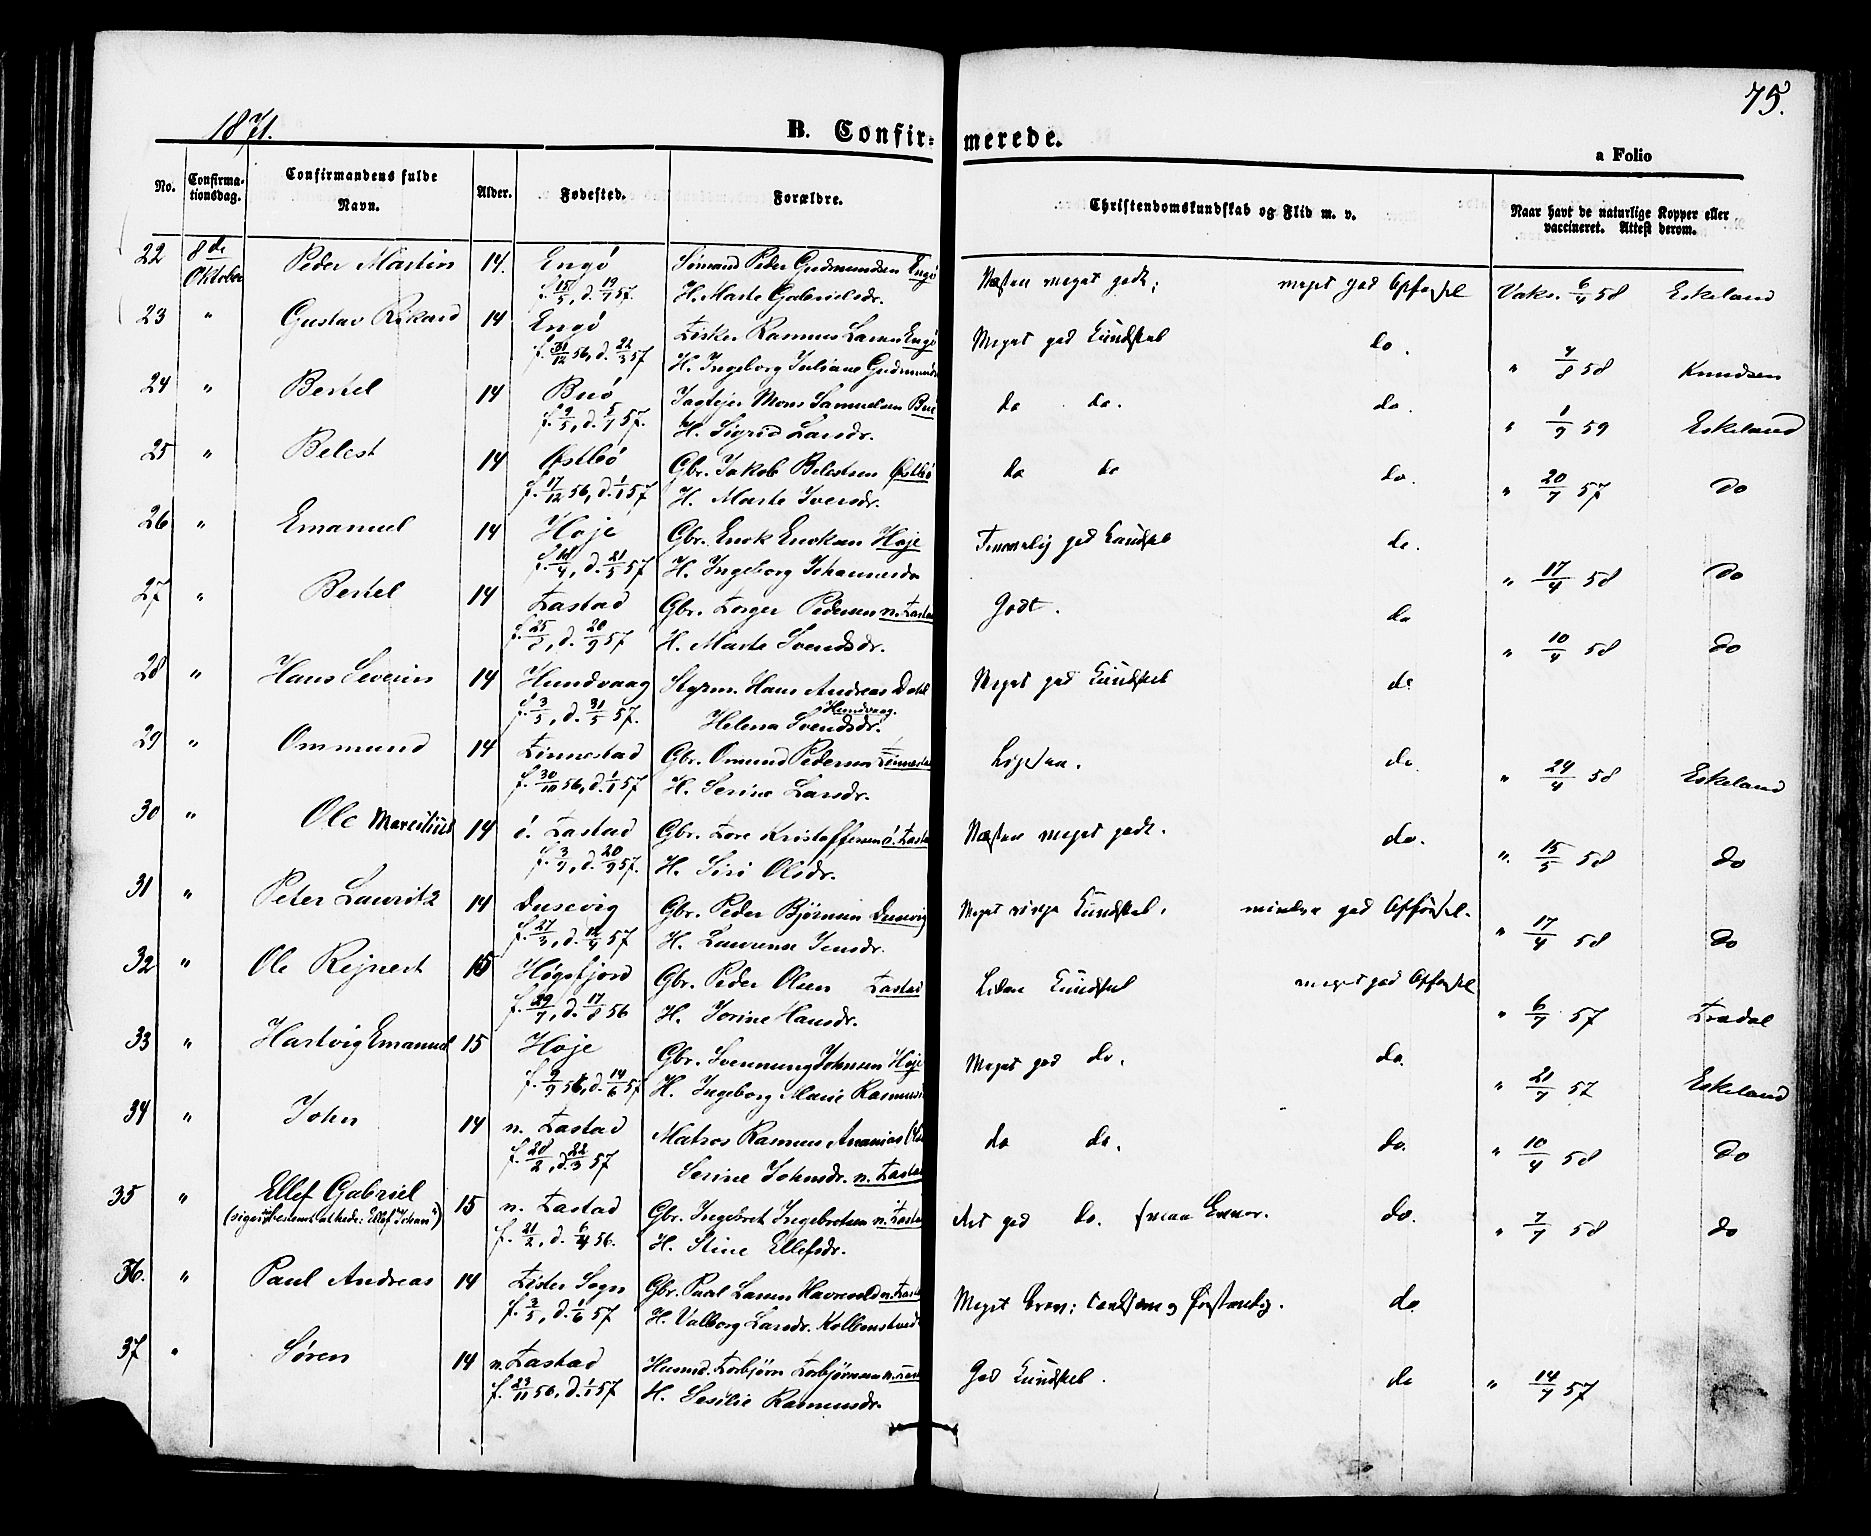 75.
1871.
B. Confir-merede.
a Folio
No.
Confirma-
tionsdag.
Confirmandens fulde
Navn.
Alder.
Fødested.
Forældre.
Christendomskundskab og Flid m. v.
Naar havt de naturlige Kopper eller
vaccineret. Attest derom.
22 8de Oktober Peder Martin 14. Engö Peder Gudmundsen Engö
f. 15/5, d. 19/7 57. H. Marte Gabrielsdr. Næsten meget godt; meget god Opførsel Vaks. 6/4 58 Eskeland
23 " Gustav Rikard 14 Engö Fisker Rasmus Larsen Engö
f. 31/12 56, d. 22/3 57 H. Ingeborg Juliane Gudmunds Meget god Kundskab do. " 4/8 58 Knudsen
24 " Bertel 14 Buö Mons Samuelsen Buö
f. 9/5, d. 5/7 57. H. Sigrid Larsdr. do do. do. " 1/9 59 Eskeland
25 " Belest 14 Östbö Gbr. Jakob Belestsen Østbö
f. 17/12 56, d. 1/1 57 H. Marte Iversdr. do do do. " 20/7 57 do
26 " Emanuel 14 Hoje Gbr. Enok Enoksen Hoje
f. 14/4, d. 21/5 57 H. Ingeborg Johannesdr god Kundskab do. " 17/4 58 do
27 " Bertel 14 Tastad Gbr. Torger Pedersen n. Tastad
f. 25/5, d. 20/9 57 H. Marte Svendsdr. Godt. do " 10/4 58 do
28 " Hans Severin 14 Hundvaag Styrm. Hans Andreas Dahl
f. 3/5, d. 31/5 57. Hundvaag.
Helena Svendsdr. Meget god Kundskab do
29 " Ommund 14 Finnestad Gbr. Omund Pedersen Finnestad
f. 30/10 56, d. 1/1 57 H. Serine Larsdr. Ligesaa. do " 24/4 58 Eskeland
30 " Ole Marcelius 14 ö. Tastad Gbr. Tore Kristoffersen ö. Tastad
f. 3/9, d. 20/9 57. H. Siri Olsdr. Næsten meget godt. do. " 15/5 58 do
31 " Peter Lauritz 14 Dusevig Gbr. Peder Björnsen Dusevig
f. 27/3, d. 12/4 57 H. Laurense Jensdr. Meget ringe Kundskab, mindre god Opførsel. " 17/4 58 do
32 " Ole Rejnert 15 Høgsfjord Gbr. Peder Olsen Tastad
f. 29/7, d. 17/8 56 H. Jorine Hansdr. Liden Kundskab meget god Opførsel " 6/7 57 Tradal
33 " Hartvig Emanuel 15 Hoje Gbr. Svennung Johnsen Hoje
f. 9/9 56, d. 14/6 57 H. Ingeborg Marie Rasmusd Meget god do. do. " 21/7 57 Eskeland
34 " John 14 n. Tastad Matros Rasmus Ananias
f. 28/2, d. 22/3 57 Serine Johnsdr. n. Tastad do do. do. " 10/4 58 do
35 " Ellef Gabriel 15 n. Tastad Gbr. Ingebret Ingebretsen n. Tastad
(siger bestemt at hede: Ellef Johan") f. 21/2, d. 6/4 56. H. Stine Ellefsdr. god do. do. " 7/7 58 do
36. " Paul Andreas 14 Lister Sogn Gbr. Paul Larsen Havneold n. Tastad
f. 3/5, d. 1/6 57 H. Valborg Larsdr. Kolbenstvedt Meget brav; do
37 " Sören 14 n. Tastad Husmd. Torbjörn Torbjörnsen n. Tast
f. 23/11 56, d. 1/1 57 H. Sesilie Rasmusdr. God Kundskab. do " 14/7 57